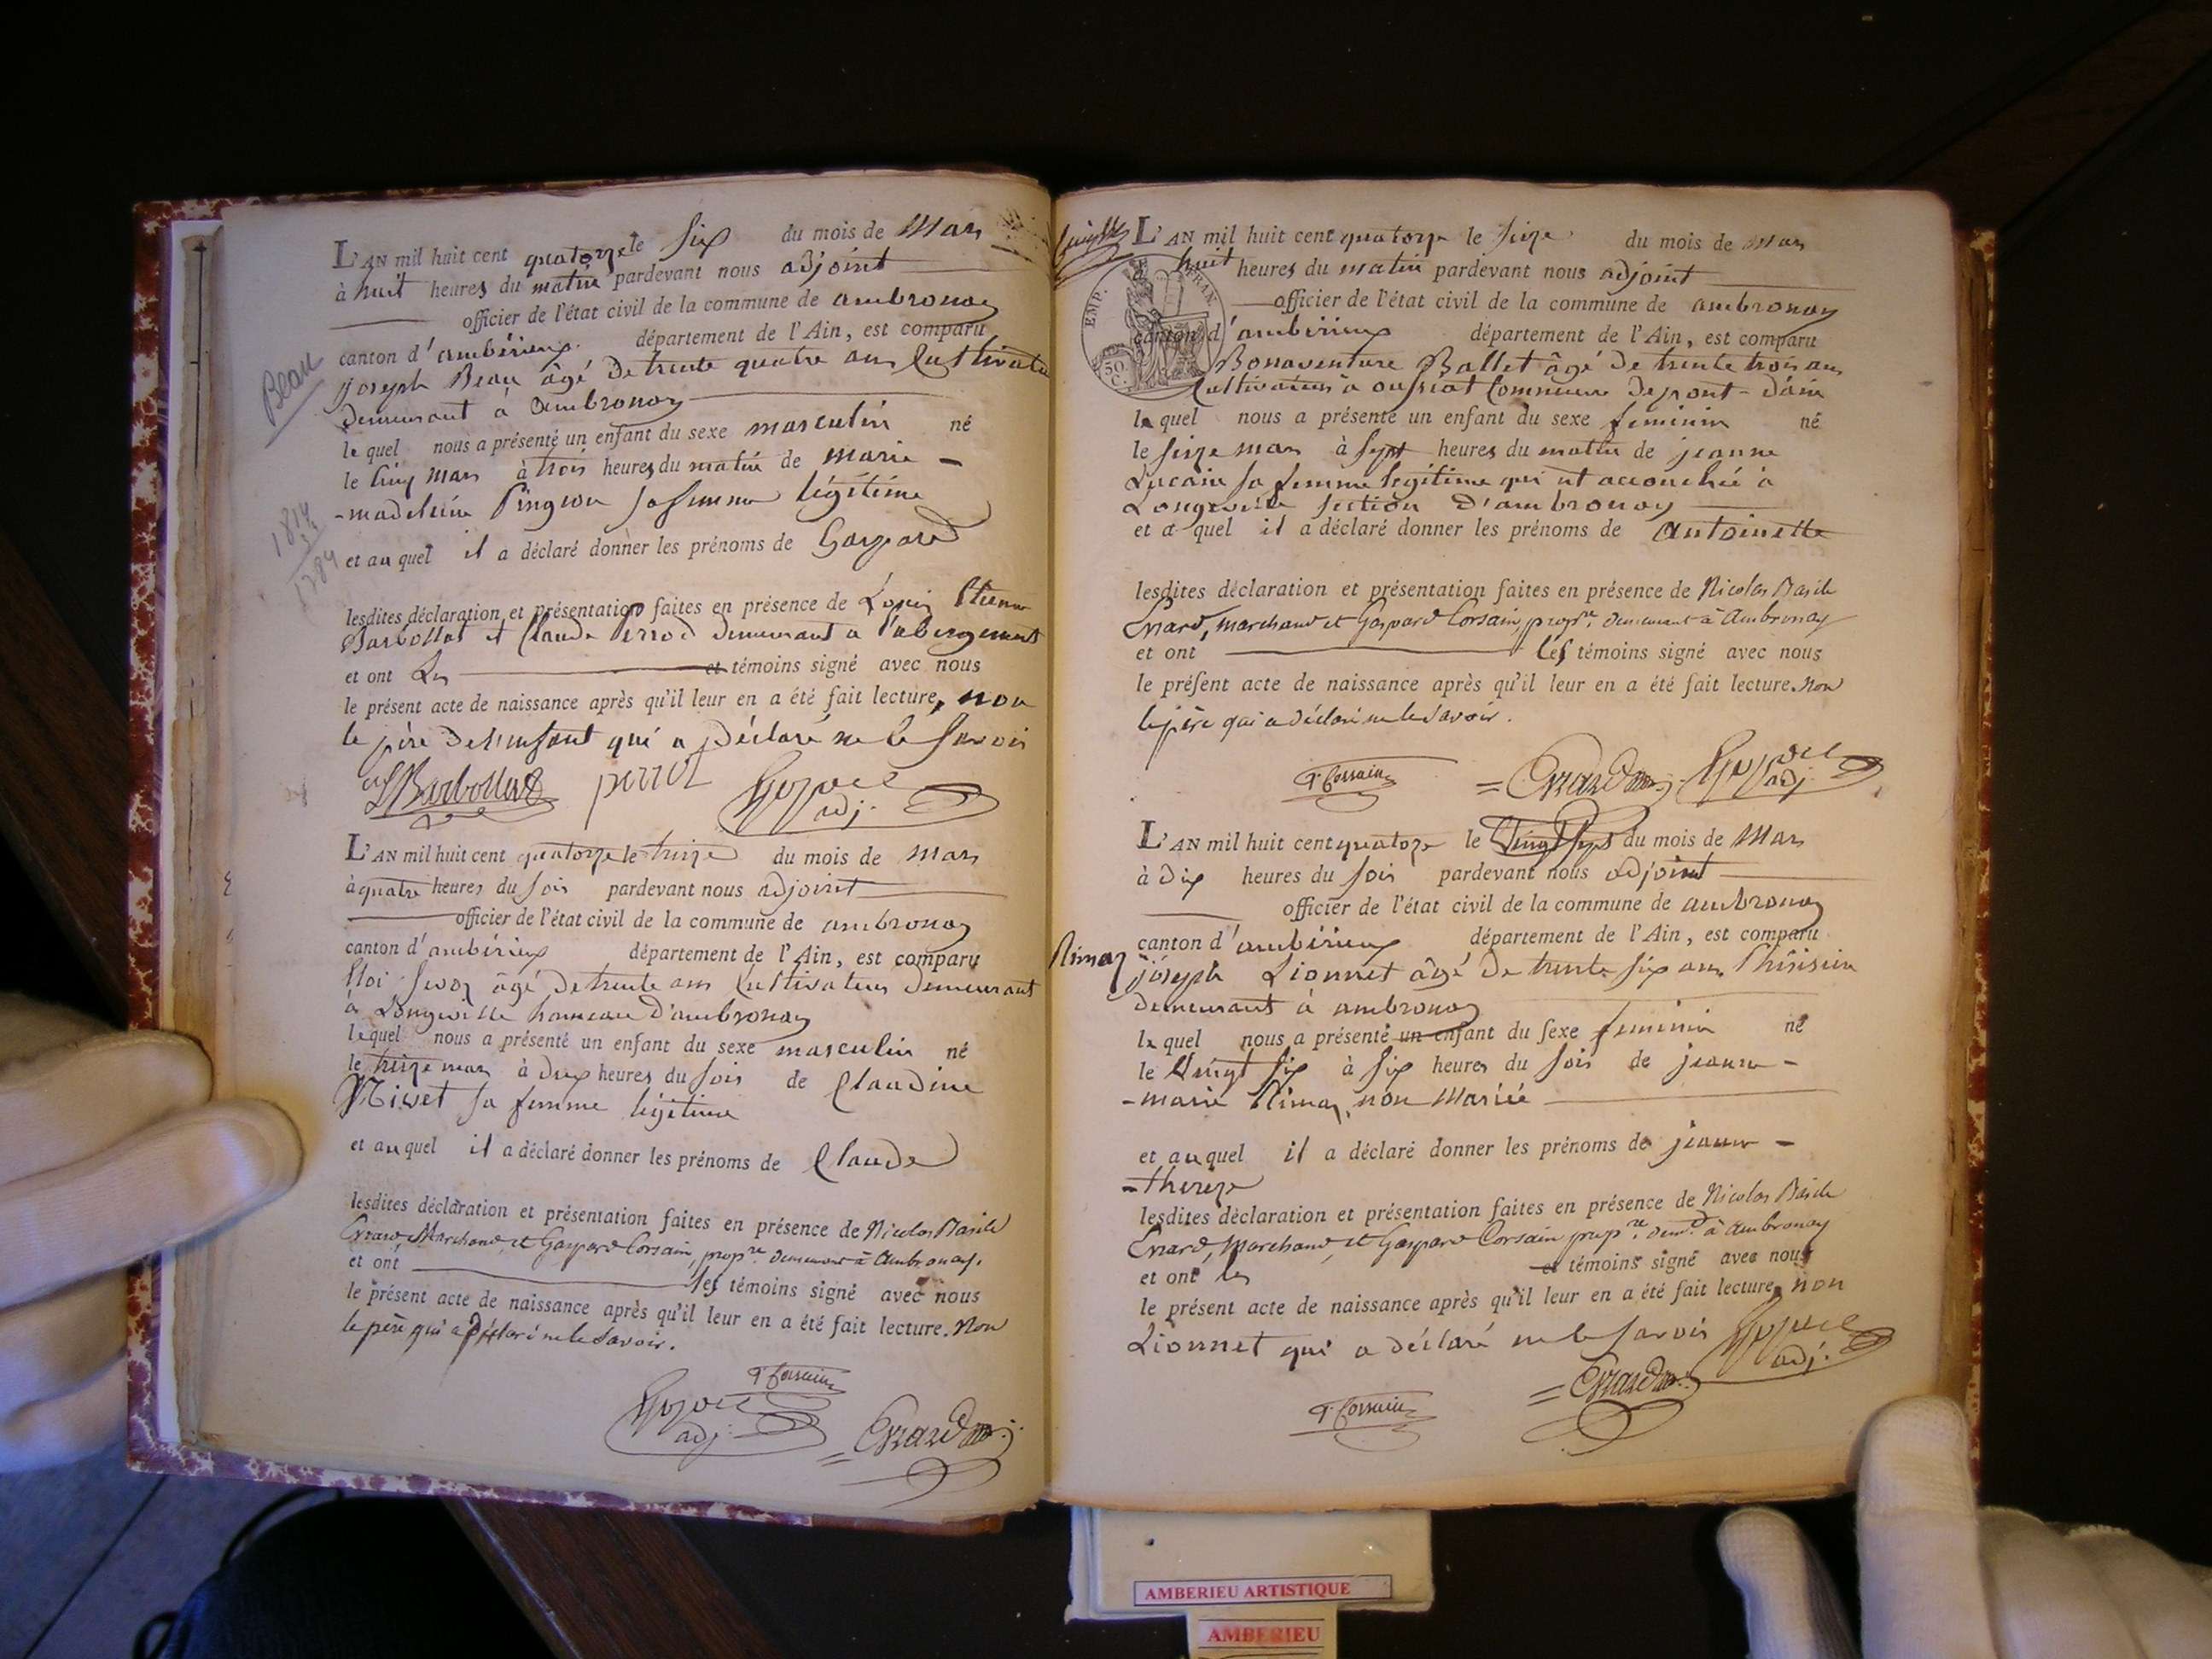 L'AN mil huit cent quatorze le six du mois de Mars
à huit heures du matin pardevant nous adjoint
officier de l'état civil de la commune de ambronay
canton d'ambérieux département de l'Ain, est comparu
joseph Beau âgé de trente quatre ans Cultivateur
demeurant à ambronay
Beau
le quel nous a présenté un enfant du sexe masculin né
le cinq mars à trois heures du matin de marie-
-madeleine Pingeon sa femme légitime
1814
et au quel il a déclaré donner les prénoms de Gaspard
lesdites déclaration et présentation faites en présence de Louis Etienne
Barbollat et Claude Perrod demeurant a l'abergement
et ont Les et témoins signé avec nous
le présent acte de naissance après qu'il leur en a été fait lecture, non
le père de l'enfant qui a déclaré ne le savoir
perrot
adj.
L'AN mil huit cent quatorze le treize du mois de mars
à quatre heures du soir pardevant nous adjoint
officier de l'état civil de la commune de ambronay
canton d'ambérieux département de l'Ain, est comparu
Eloi âgé de trente ans Cultivateur demeurant
à Longeville hameau d'ambronay
lequel nous a présenté un enfant du sexe masculin né
le treize mars à deux heures du soir de Claudine
Nivet sa femme légitime
et au quel il a déclaré donner les prénoms de Claude
lesdites déclaration et présentation faites en présence de Nicolas Basile
Errard, Marchand, et Gaspard Corsain, propre. demeurant à Ambronay.
et ont les témoins signé avec nous
le présent acte de naissance après qu'il leur en a été fait lecture. Non
le père qui a déclaré ne le savoir.
G. Corsain
adj.
Errard
L'AN mil huit cent quatorze le seize du mois de mars
huit heures du matin pardevant nous adjoint
EMP. FRAN.
officier de l'état civil de la commune de ambronay
canton d'ambérieux département de l'Ain, est comparu
50 C.
Bonaventure Ballet âgé de trente trois ans
Cultivateur à oussiat Commune de pont-d'ain
le quel nous a présenté un enfant du sexe feminin né
le seize mars à sept heures du matin de jeanne
Lucain sa femme légitime qui est accouchée à
Longeville section d'ambronay
et a quel il a déclaré donner les prénoms de Antoinette
lesdites déclaration et présentation faites en présence de Nicolas Basile
Errard, Marchand et Gaspard Corsain, propre. demeurant à Ambronay
et ont les témoins signé avec nous
le présent acte de naissance après qu'il leur en a été fait lecture. Non
le père qui a déclaré ne le savoir.
G. Corsain Errard adj.
L'AN mil huit cent quatorze le Vingt Sept du mois de Mars
à dix heures du soir pardevant nous adjoint
officier de l'état civil de la commune de ambronay
canton d'ambérieux département de l'Ain, est comparu
joseph Lionnet âgé de trente six ans
demeurant à ambronay
le quel nous a présenté un enfant du sexe feminin né
le Vingt six à six heures du soir de jeanne-
-marie non Mariée
et au quel il a déclaré donner les prénoms de jeanne-
-thereze
lesdites déclaration et présentation faites en présence de Nicolas Basile
Errard, Marchand, et Gaspard Corsain propre. demt. à Ambronay
et ont les et témoins signé avec nous
le présent acte de naissance après qu'il leur en a été fait lecture, non
Lionnet qui a déclaré ne le savoir
adj.
Errard
G. Corsain
AMBERIEU ARTISTIQUE
AMBERIEU